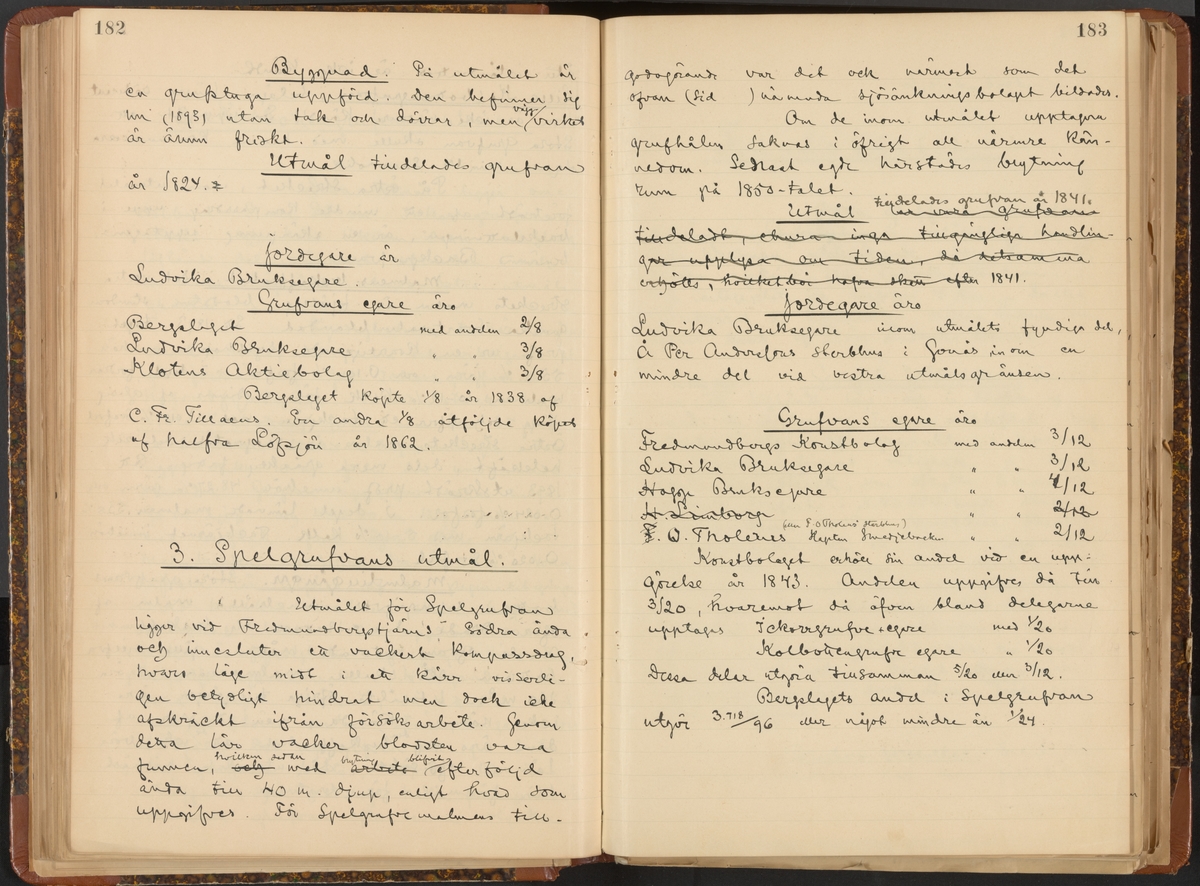 182
Byggnad. På utmålet är
en grufstuga uppförd. Den befinner sig
nu (1893) utan tak och dörrar, men vägg virket
är ännu friskt.
Utmål tilldelades grufvan
år 1824.
Jordegare är
Ludvika Bruksegare.
Grufvans egare äro
Bergslaget med andelen 2/8
Ludvika Bruksegare " " 3/8
Klotens Aktiebolag " " 3/8
Bergslaget köpte 1/8 år 1838 af
C. Fr. Tillaeus. En andra 1/8 åtföljde köpet
af halfva Löfsjön år 1862.
3. Spelgrufvans utmål.
Utmålet för Spelgrufvan
ligger vid Fredmundbergstjärns Södra ända
och innesluter ett vackert kompassdrag,
hvars läge midt i ett kärr visserli-
gen betydligt hindrat men dock icke
afskräckt ifrån försöksarbete. Genom
detta lär vacker blodsten vara
hvilken sedan brytning blifvit
funnen, och med arbete efterföljd
ända till 40 m. djup, enligt hvad som
uppgifves. För Spelgrufvemalmens till-
183
godogörande var det och närmast som det
ofvan (Sid ) nämnda sjösänkningsbolaget bildades.
Om de inom utmålet upptagna
grufhålen saknas i öfrigt all närmre kän-
nedom. Sedlast egde härstädes brytning
rum på 1850-talet.
tilldelades grufvan år 1841.
Utmål är våra grufvan
tilldeladt, ehuru inga tillgängliga handlin-
gar upplysa om tiden, då detsamma
erhölls, hvilket bör hafva skett efter 1841.
Jordegare äro
Ludvika Bruksegare inom utmålets fyndiga del,
Å Per Anderssons sterbhus i Gonäs, inom en
mindre del vid vestra utmålsgränsen.
Grufvans egare äro
Fredmundbergs Konstbolag med andelen 3/12
Ludvika Bruksegare " " 3/12
Hagge Bruksegare " " 4/12
H. Limborg " " 2/12
(eller F. O Tholens' sterbhus)
F. O. Tholenes Heften Smedjebacken " " 2/12
Konstbolaget erhöll sin andel vid en upp-
görelse år 1843. Andelen uppgifves då till
3/20, hvaremot då äfven bland delegarne
upptages Ickorrgrufve egare med 1/20
Kolbottengrufve egare " 1/20
Dessa delar utgöra tillsamman 5/20 eller 3/12.
Bergslagets andel i Spelgrufvan
utgör 3.718/96 eller något mindre än 1/24.